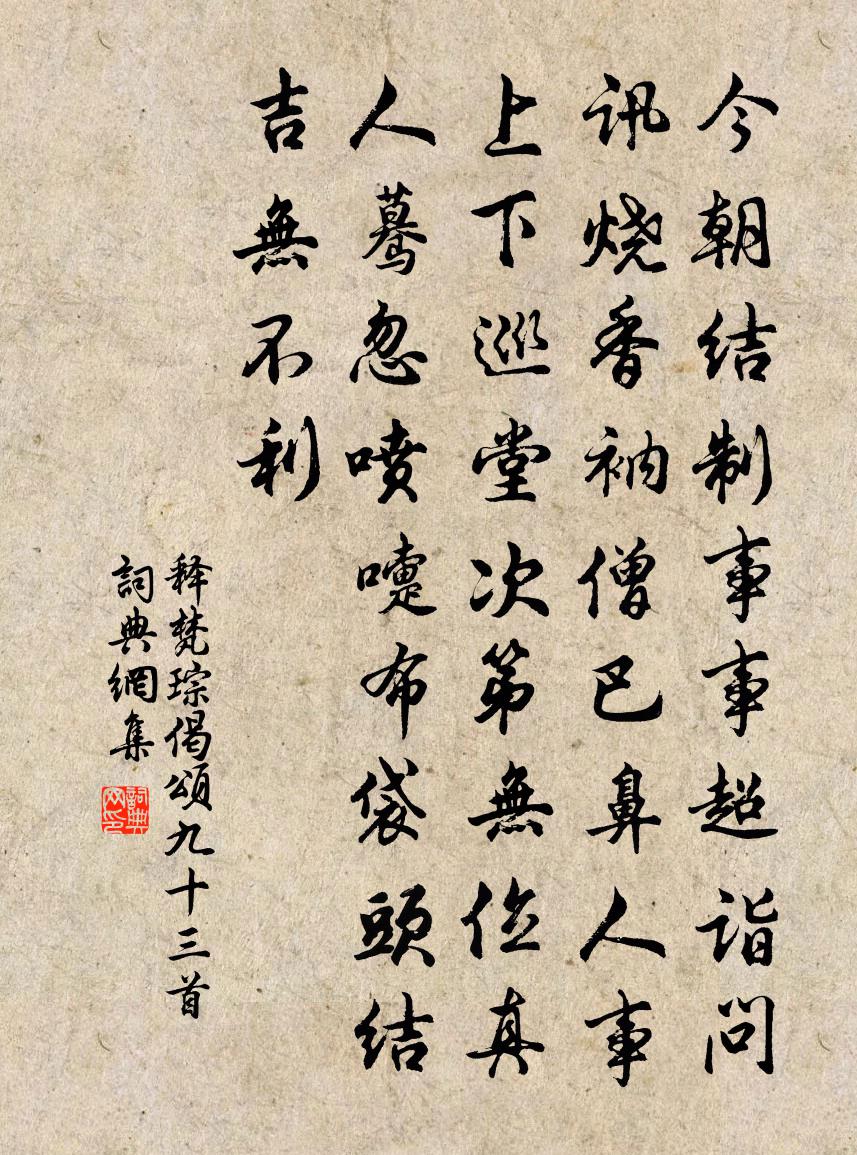 今朝结制事事超诣问
讯烧香衲僧巴鼻人事
上下巡堂次第無位真
人蓦忽喷嚏布袋頭结
吉無不利
释梵琮偈頌九十三首
詞典網集
詞典网印